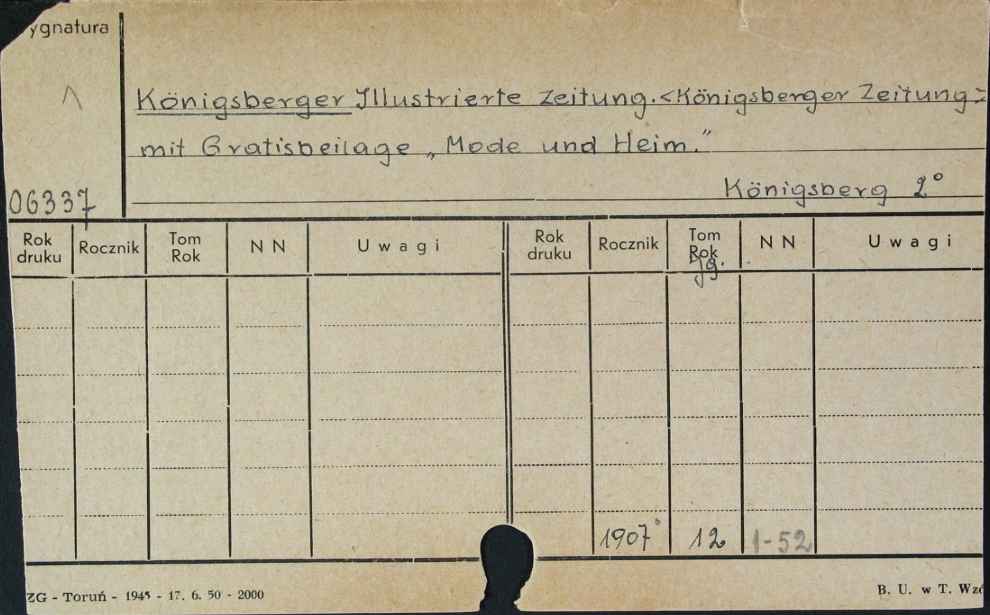 ygnatura
Königsberger Illustrierte Zeitung. <Königsberger Zeitung>
mit Gratisbeilage „Mode und Heim."
06337
Königsberg 2°
Rok druku Rocznik Tom Rok NN Uwagi Rok druku Rocznik Tom Rok NN Uwagi
Jg.
1907 12 1-52
ZG - Toruń - 1945 - 17. 6. 50 - 2000 B. U. w T. Wzó